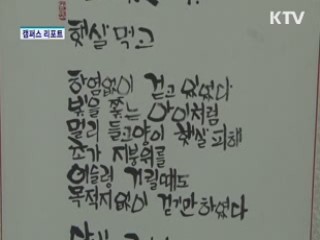 KTV
캠퍼스 리포트
햇살 먹고
하염없이 걷고 있었다
빛을 쫓는 아이처럼
멀리 들고양이 햇살 피해
초가 지붕위를
어슬렁 거릴때도
목적지없이 걷기만 하였다